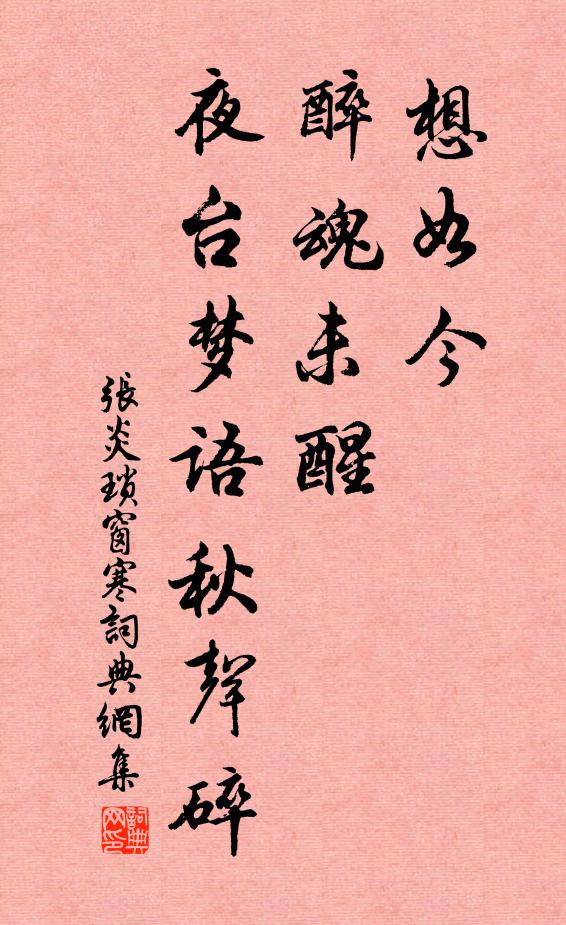 想如今
醉魂未醒
夜台梦语秋聲碎
張炎瑣窗寒詞典網集
詞典
网印